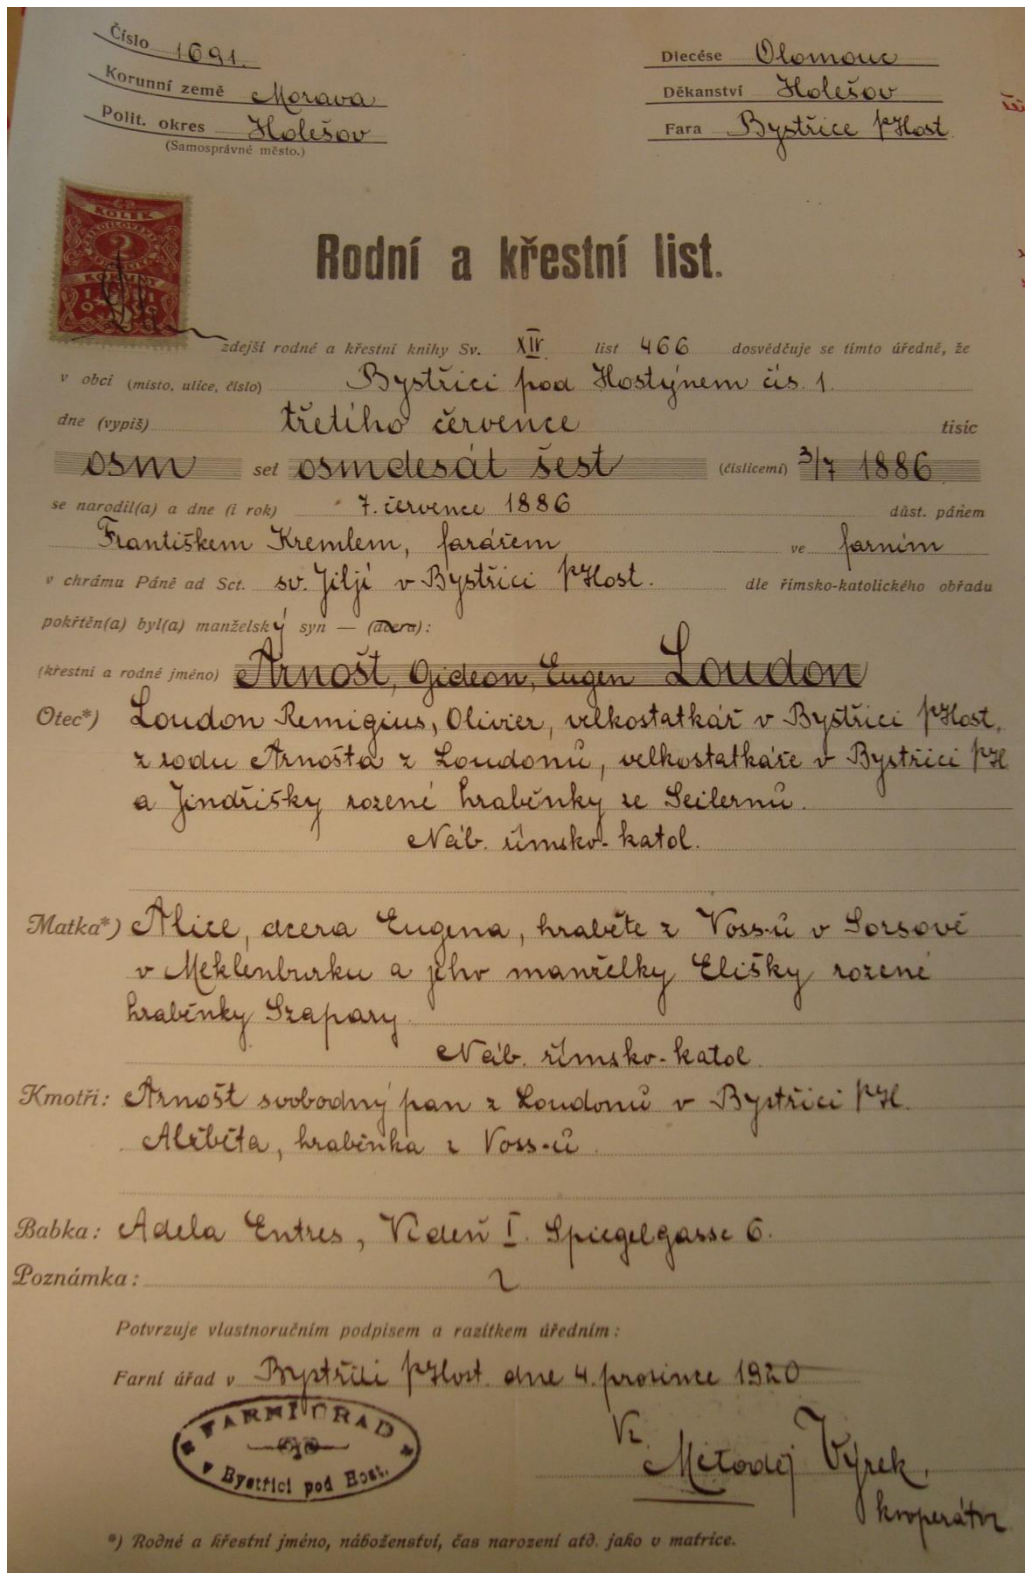 Číslo 1691.
Korunní země Morava
Polit. okres Holešov
(Samosprávné město.)
Diecése Olomouc
Děkanství Holešov
Fara Bystřice p/Host
KOLEK
2
KORUNY
Rodní a křestní list.
zdejší rodné a křestní knihy Sv. XIV list 466 dosvědčuje se tímto úředně, že
v obci (místo, ulice, číslo) Bystřici pod Hostýnem čís. 1.
dne (vypiš) třetího července tisíc
osm set osmdesát šest (číslicemi) 3/7 1886
se narodil(a) a dne (i rok) 7. července 1886 důst. pánem
Františkem Kremlem, farářem ve farním
v chrámu Páně ad Sct. sv. Jiljí v Bystřici p/Host. dle římsko-katolického obřadu
pokřtěn(a) byl(a) manželský syn — (dcera):
(křestní a rodné jméno) Arnošt, Gideon, Eugen Loudon
Otec*) Loudon Remigius, Olivier, velkostatkář v Bystřici p/Host.
z rodu Arnošta z Loudonů, velkostatkáře v Bystřici p/H
a Jindřišky rozené hraběnky ze Seilernů.
Náb. římsko-katol.
Matka*) Alice, dcera Eugena, hraběte z Voss-ů v Sorsově
v Meklenburku a jeho manželky Elišky rozené
hraběnky Szapary.
Náb. římsko-katol.
Kmotři: Arnošt svobodný pan z Loudonů v Bystřici p/H.
Alžběta, hraběnka z Voss-ů.
Babka: Adela Entres, Vídeň I. Spiegelgasse 6.
Poznámka:
Potvrzuje vlastnoručním podpisem a razítkem úředním:
Farní úřad v Bystřici p/Host. dne 4. prosince 1920
FARNÍ ÚŘAD
v Bystřici pod Host.
Vz. Metoděj Výrek,
kooperátor
*) Rodné a křestní jméno, náboženství, čas narození atd. jako v matrice.